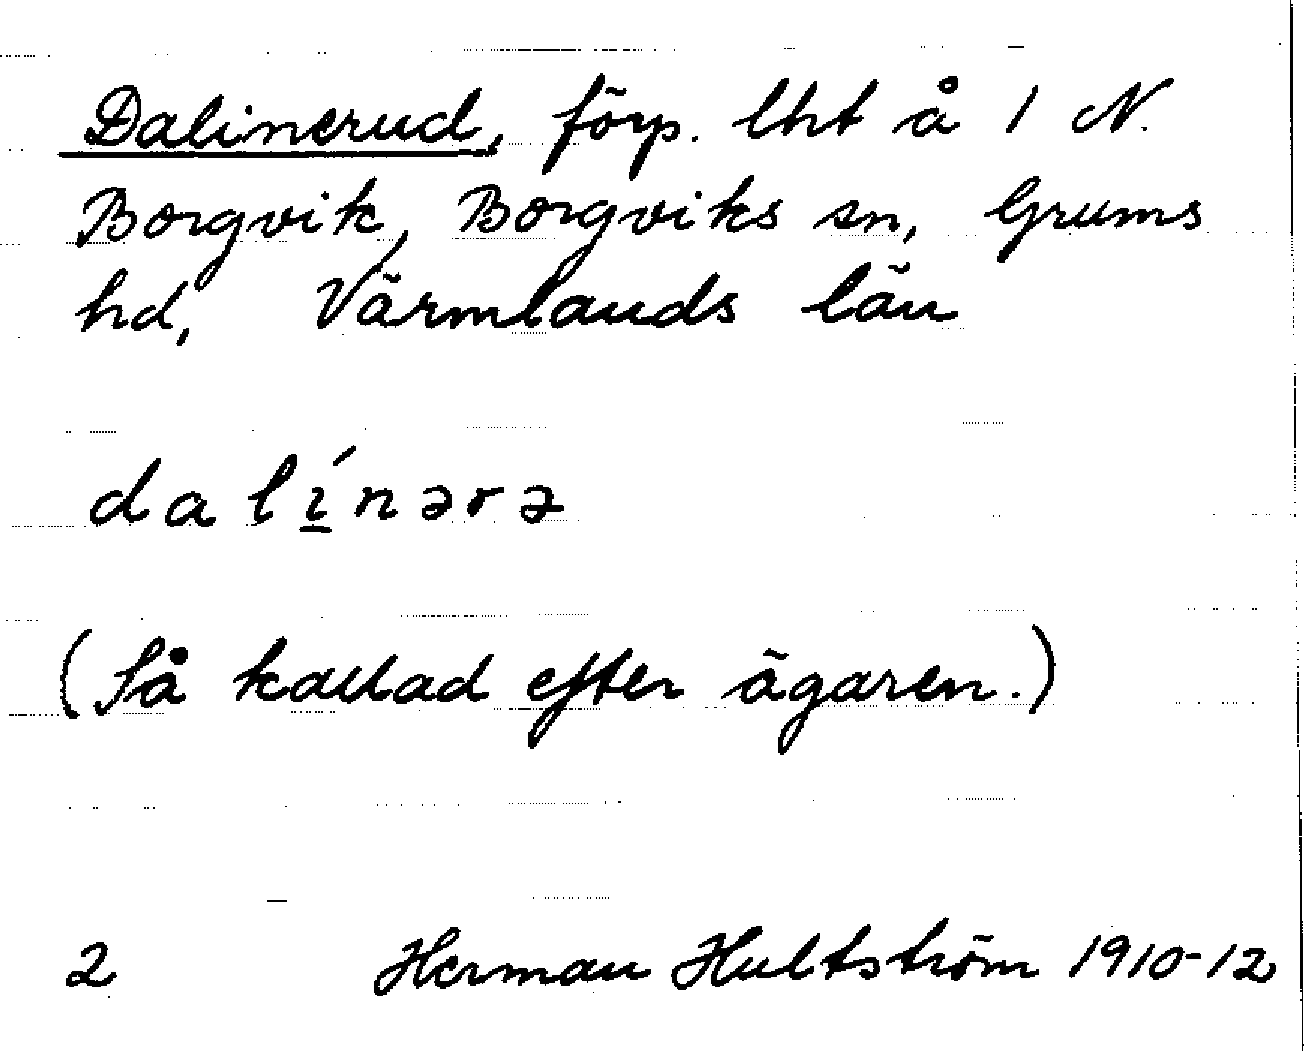 Dalinerud, förp. lht å 1 N.
Borgvik, Borgviks sn, Grums
hd, Värmlands län
dalı̱́nərə
(Så kallad efter ägaren.)
2 Herman Hultström 1910-12